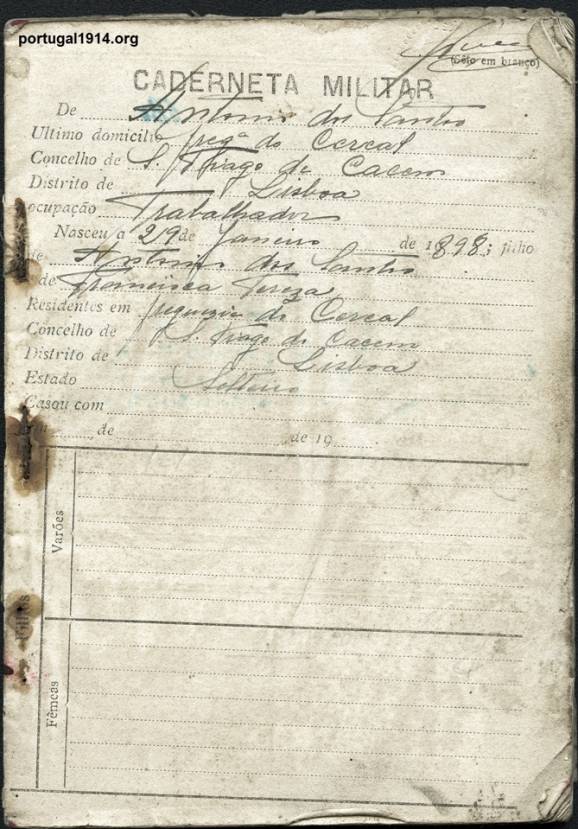 portugal1914.org
(Sêlo em branco)
CADERNETA MILITAR
De Antonio dos Santos
Ultimo domicilio fregª do Cercal
Concelho de S. Thiago de Cacem
Distrito de Lisboa
ocupação Trabalhador
Nasceu a 29 de Janeiro de 1898; filho
de Antonio dos Santos
de Francisca Tereza
Residentes em freguezia do Cercal
Concelho de S. Thiago de Cacem
Distrito de Lisboa
Estado Solteiro
Casou com
de de 19
Filhos
Varões
Fêmeas